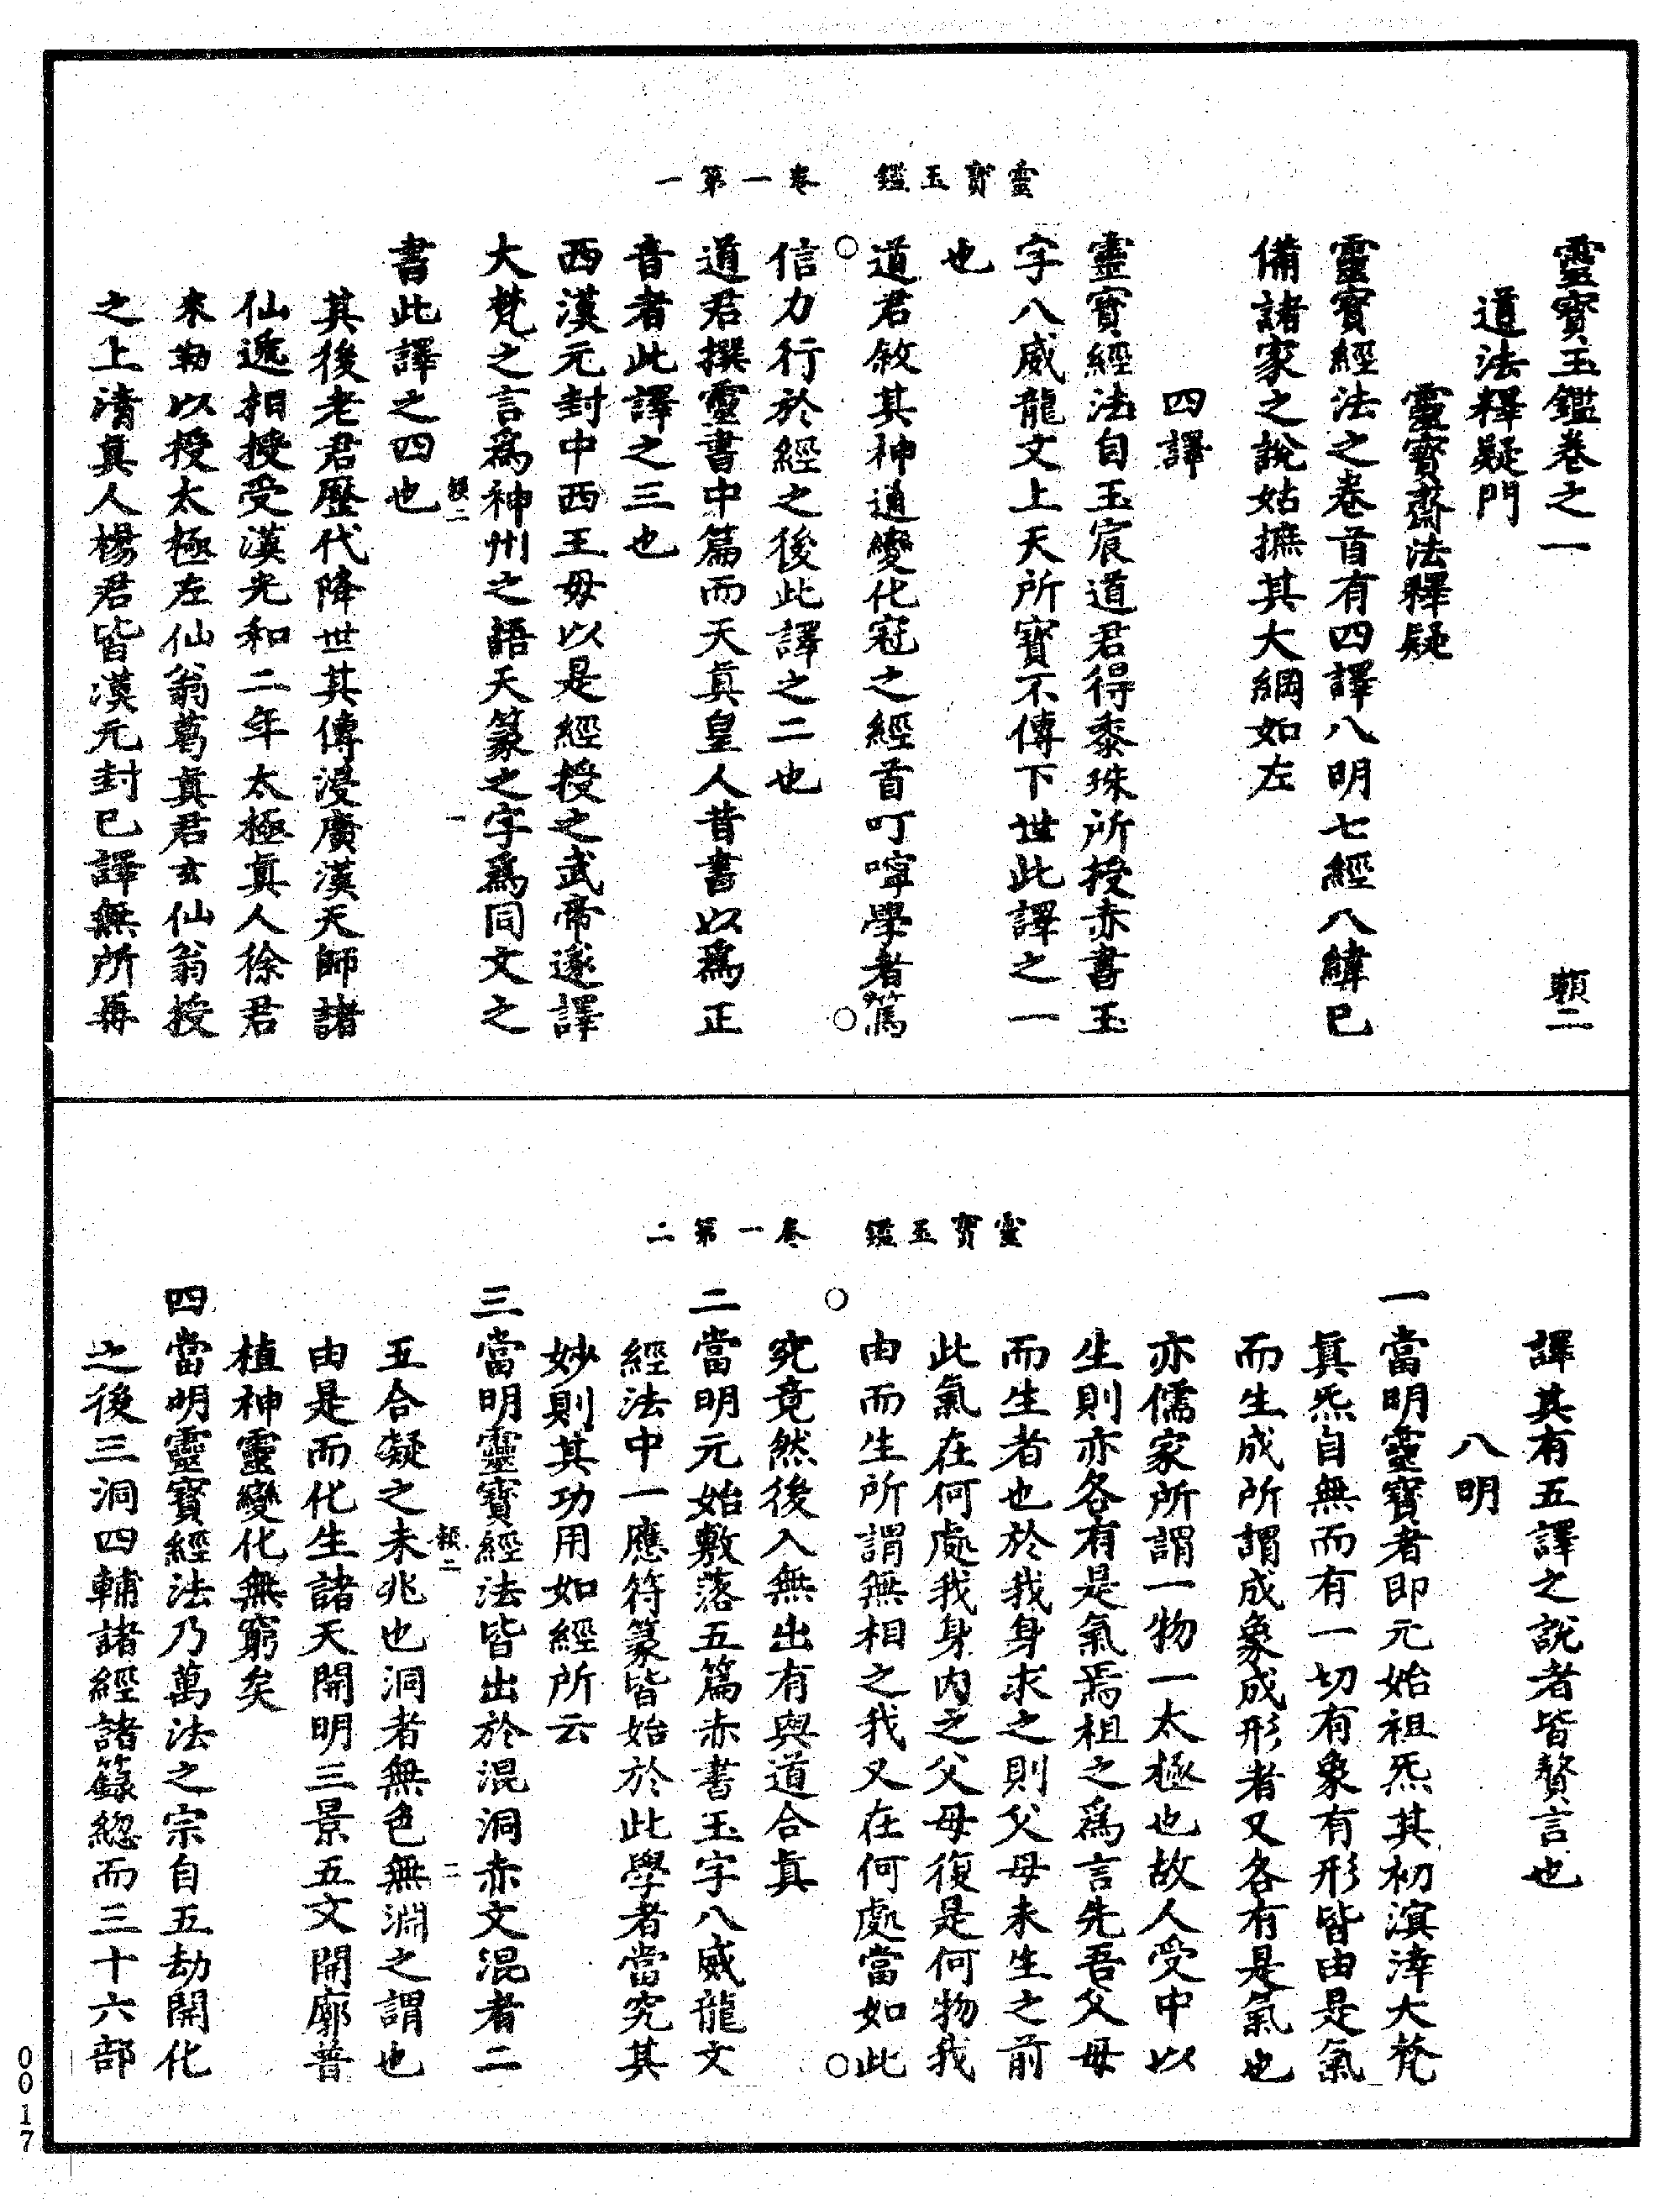 靈寶玉鑑 卷一第一
靈寶玉鑑卷之一 頼二
道法釋疑門
靈寶齋法釋疑
靈寶經法之卷首有四譯八明七經八緯已
備諸家之說姑摭其大綱如左
四譯
靈寶經法自玉宸道君得黍珠所授赤書玉
字八威龍文上天所寶不傳下世此譯之一
也
道君敘其神通變化冠之經首叮嚀學者篤
信力行於經之後此譯之二也
道君撰靈書中篇而天眞皇人昔書以爲正
音者此譯之三也
西漢元封中西王母以是經授之武帝遂譯
大梵之言爲神州之語天篆之字爲同文之
頼二 一
書此譯之四也
其後老君歷代降世其傳浸廣漢天師諸
仙遞相授受漢光和二年太極眞人徐君
來勒以授太極左仙翁葛眞君玄仙翁授
之上清眞人楊君皆漢元封已譯無所再
靈寶玉鑑 卷一第二
譯其有五譯之說者皆贅言也
八明
一當明靈寶者即元始祖炁其初溟涬大梵
眞炁自無而有一切有象有形皆由是氣
而生成所謂成象成形者又各有是氣也
亦儒家所謂一物一太極也故人受中以
生則亦各有是氣焉祖之爲言先吾父母
而生者也於我身求之則父母未生之前
此氣在何處我身内之父母復是何物我
由而生所謂無相之我又在何處當如此
究竟然後入無出有與道合眞
二當明元始敷落五篇赤書玉字八威龍文
經法中一應符篆皆始於此學者當究其
妙則其功用如經所云
三當明靈寶經法皆出於混洞赤文混者二
頼二 二
五合凝之未兆也洞者無色無淵之謂也
由是而化生諸天開明三景五文開廓普
植神靈變化無窮矣
四當明靈寶經法乃萬法之宗自五劫開化
之後三洞四輔諸經諸籙總而三十六部
0017